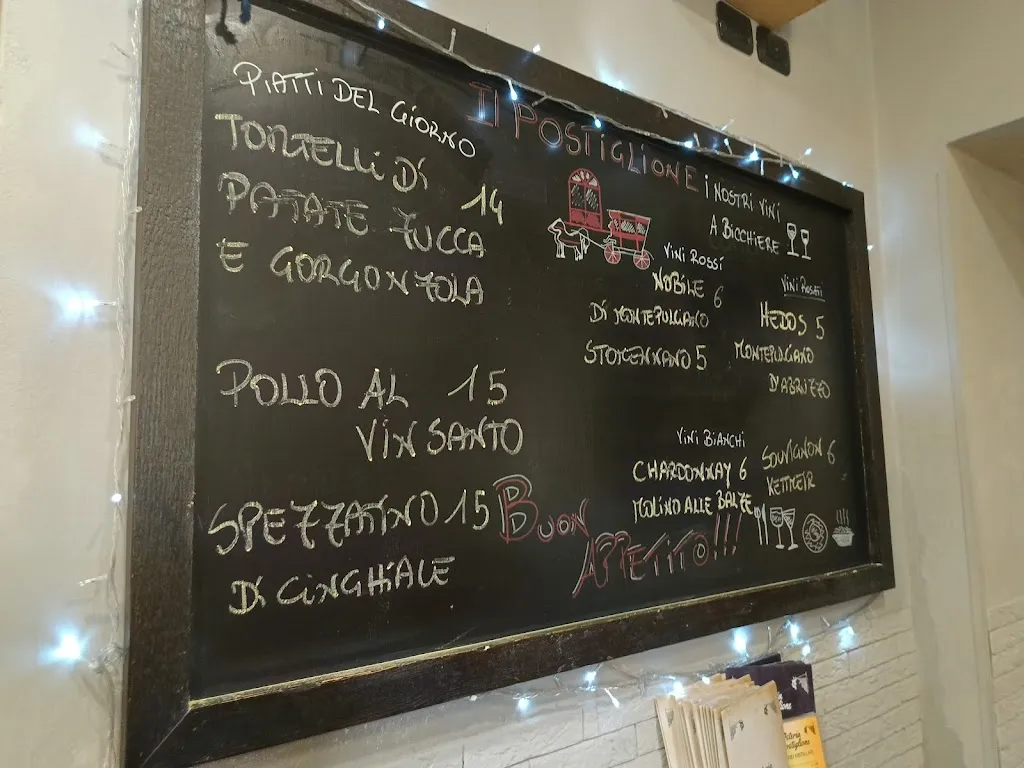 PIATTI DEL GIORNO
TORTELLI DI
PATATE ZUCCA 14
E GORGONZOLA
POLLO AL 15
VIN SANTO
SPEZZATINO 15
DI CINGHIALE
IL POSTIGLIONE
I NOSTRI VINI
A BICCHIERE
VINI ROSSI
NOBILE 6
DI MONTEPULCIANO
STOKENNANO 5
VINI ROSATI
HEDOS 5
MONTEPULCIANO
D'ABRUZZO
VINI BIANCHI
CHARDONNAY 6
MOLINO ALLE BALZE
SOUVIGNON 6
KETTMEIR
BUON
APPETITO!!!